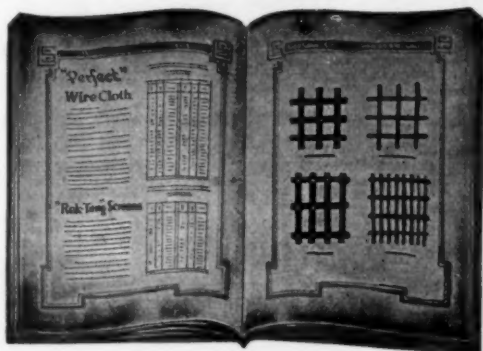 "Perfect"
Wire Cloth
"Rek-Tang" Screens